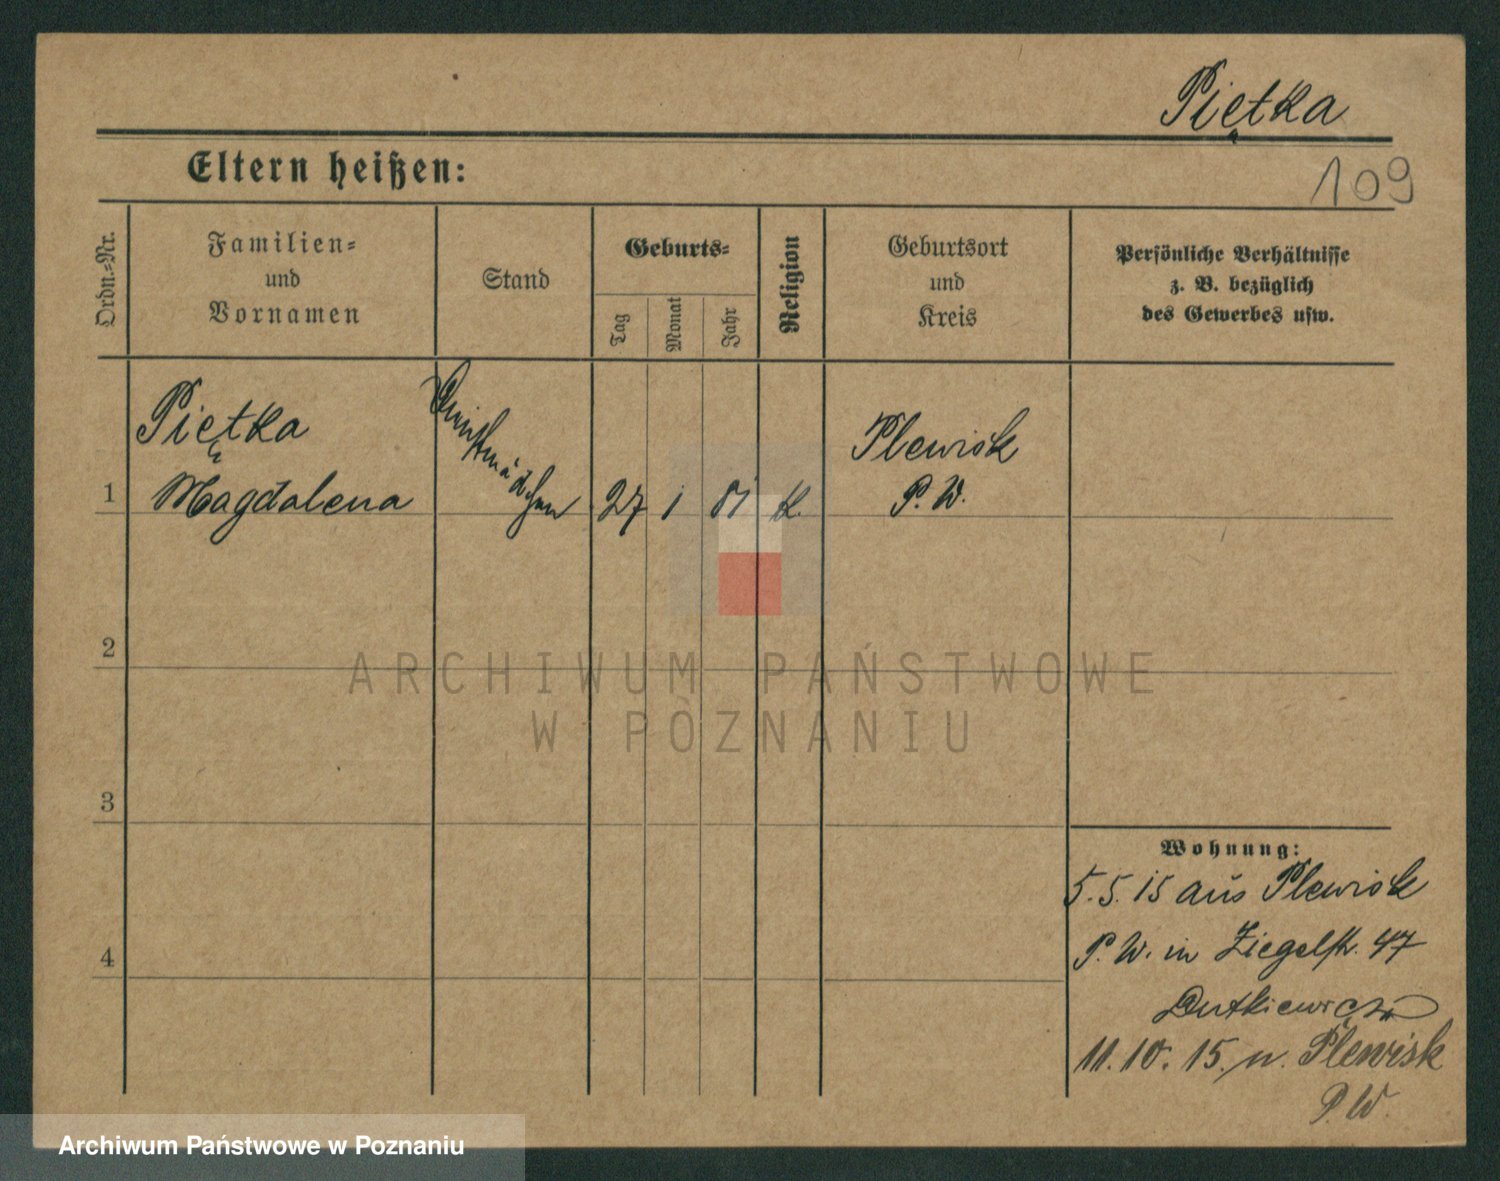 Piętka
109
Eltern heißen:
Ordn.-Nr.
Familien-
und
Vornamen
Stand
Geburts-
Tag
Monat
Jahr
Religion
Geburtsort
und
Kreis
Persönliche Verhältnisse
z. B. bezüglich
des Gewerbes usw.
1
Piętka
Magdalena
Dienstmädchen
27
1
81
K.
Plewisk
P. W.
2
3
4
Wohnung:
5.5.15 aus Plewisk
P. W. in Ziegelstr. 47
Dutkiewicz
11.10.15. n. Plewisk
P. W.
ARCHIWUM PAŃSTWOWE
W POZNANIU
Archiwum Państwowe w Poznaniu